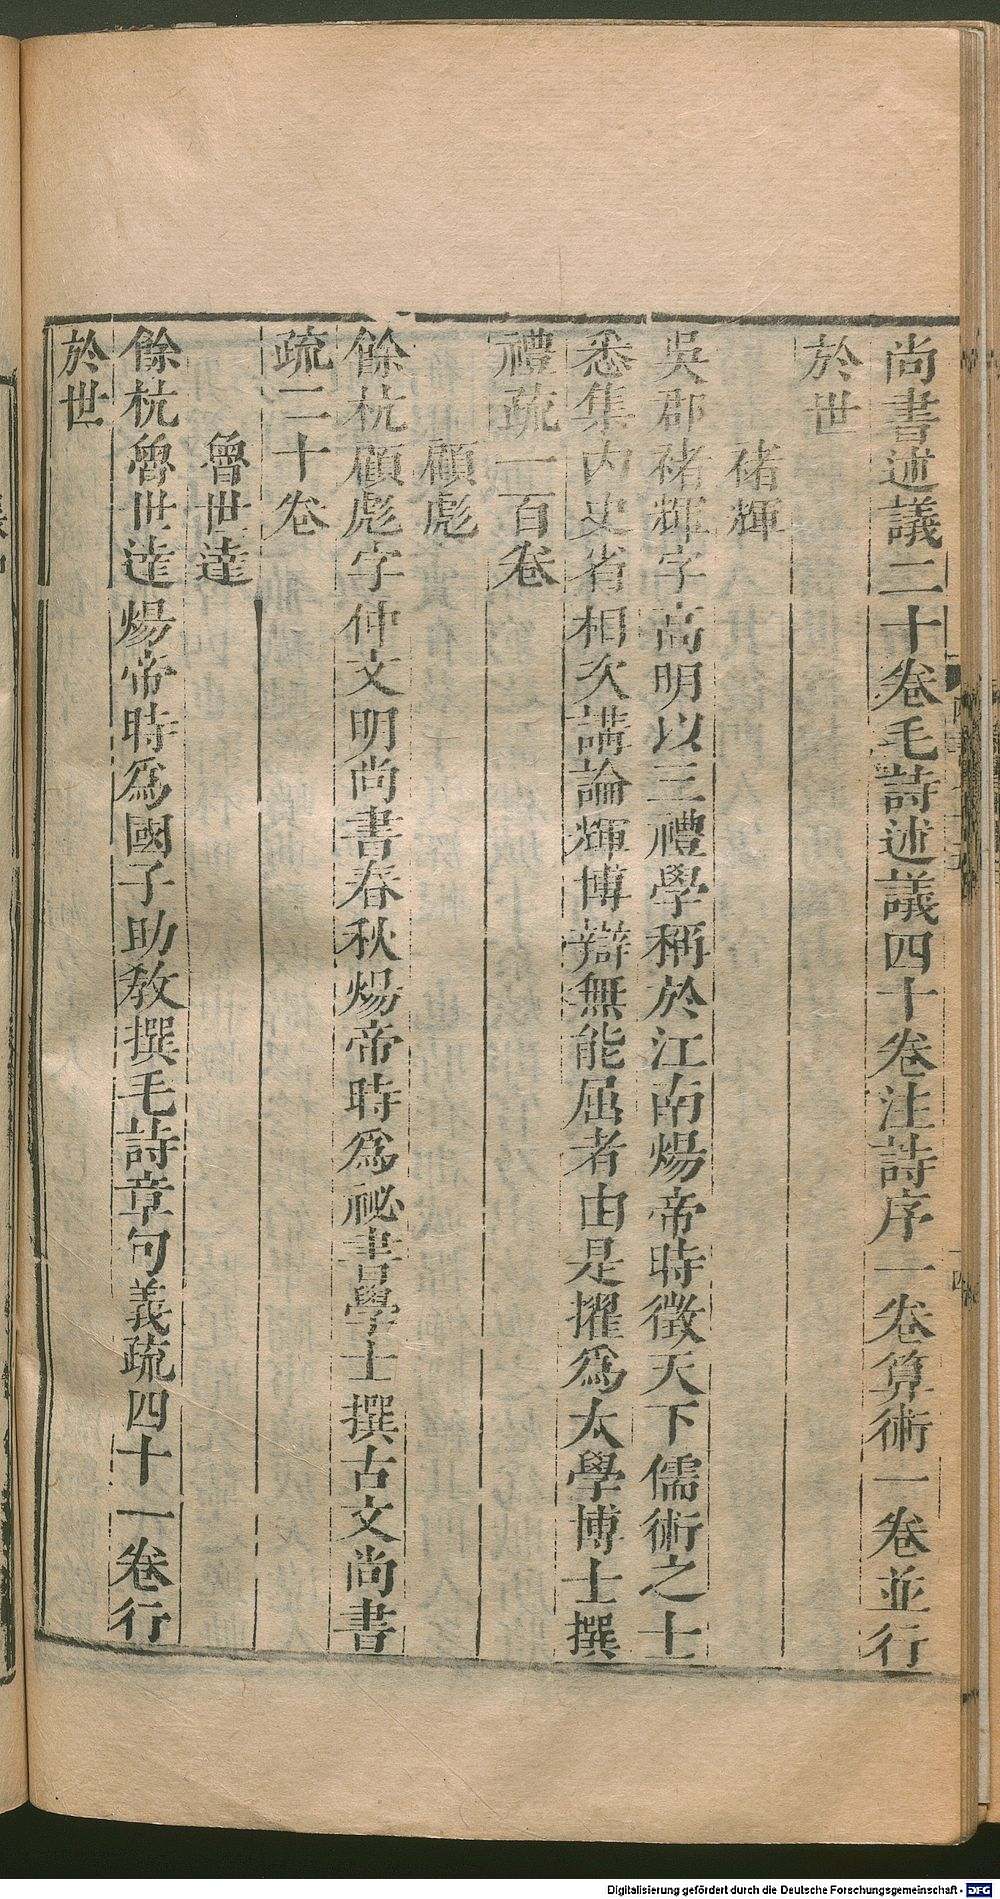 尚書述議二十卷毛詩述議四十卷注詩序一卷算術一卷並行
於世
褚輝
吳郡褚輝字高明以三禮學稱於江南煬帝時徵天下儒術之士
悉集内史省相次講論輝博辯無能屈者由是擢爲太學博士撰
禮疏一百卷
顧彪
餘杭顧彪字仲文明尚書春秋煬帝時爲祕書學士撰古文尚書
疏二十卷
魯世達
餘杭魯世達煬帝時爲國子助教撰毛詩章句義疏四十一卷行
於世
Digitalisierung gefördert durch die Deutsche Forschungsgemeinschaft - DFG